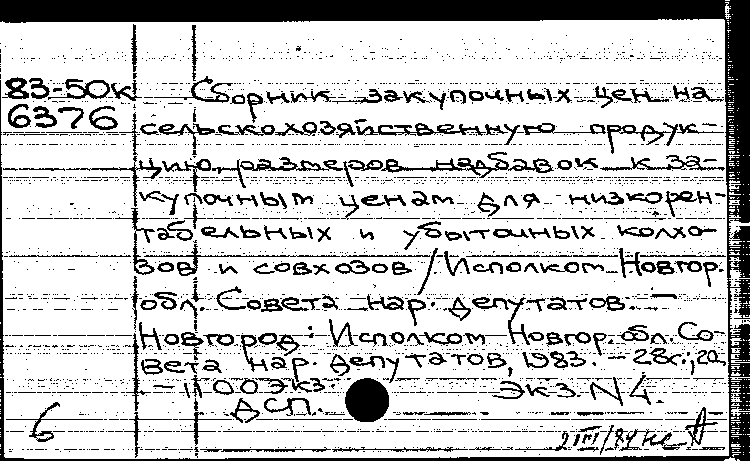 83-50к Сборник закупочных цен на
6376 сельскохозяйственную продук-
цию, размеров надбавок к за-
купочным ценам для низкорен-
табельных и убыточных колхо-
зов и совхозов / Исполком Новгор.
обл. Совета нар. депутатов. —
Новгород: Исполком Новгор. обл. Со-
вета нар. депутатов, 1983. — 28с.; 20.
. — 1100 экз. экз. N4.
ДСП.
6